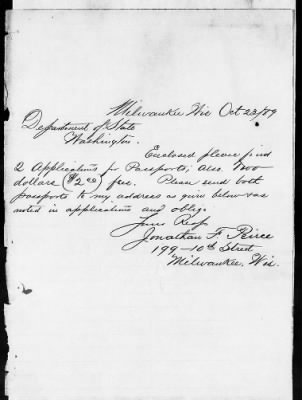 Milwaukee Wis Oct 23/79
Department of State
Washington.
Enclosed please find
2 Applications for Passports; Also Two
dollars ($2.00) fees. Please send both
passports to my address as given below & as
noted in applications and oblige
Yours Respy
Jonathan F. Peirce
199 - 10th Street
Milwaukee, Wis.